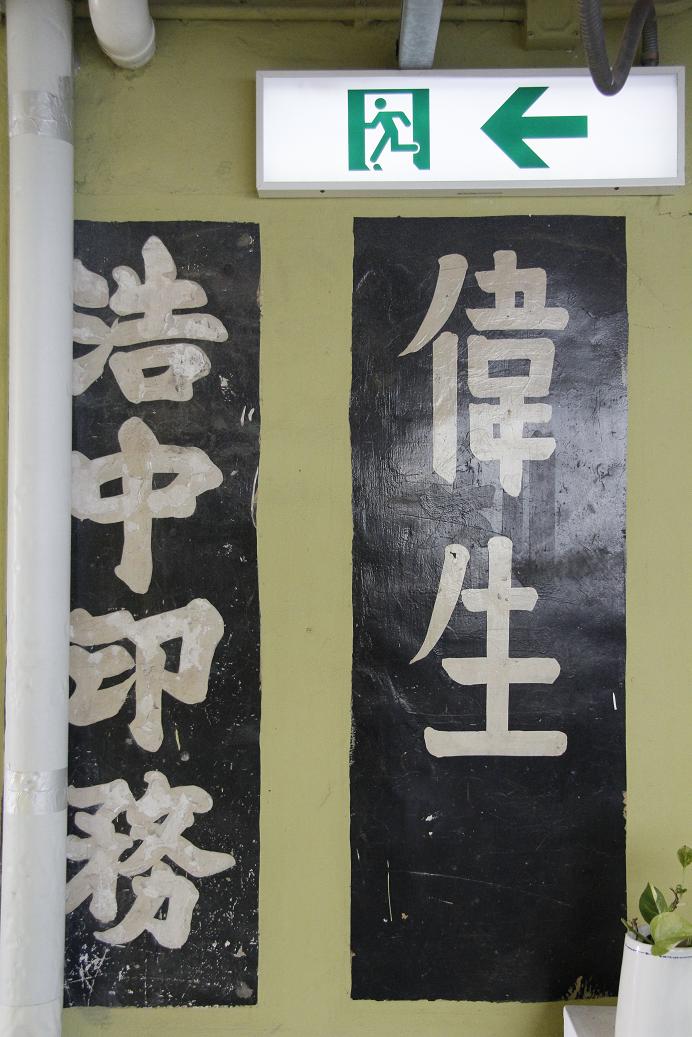 偉生
浩中印務